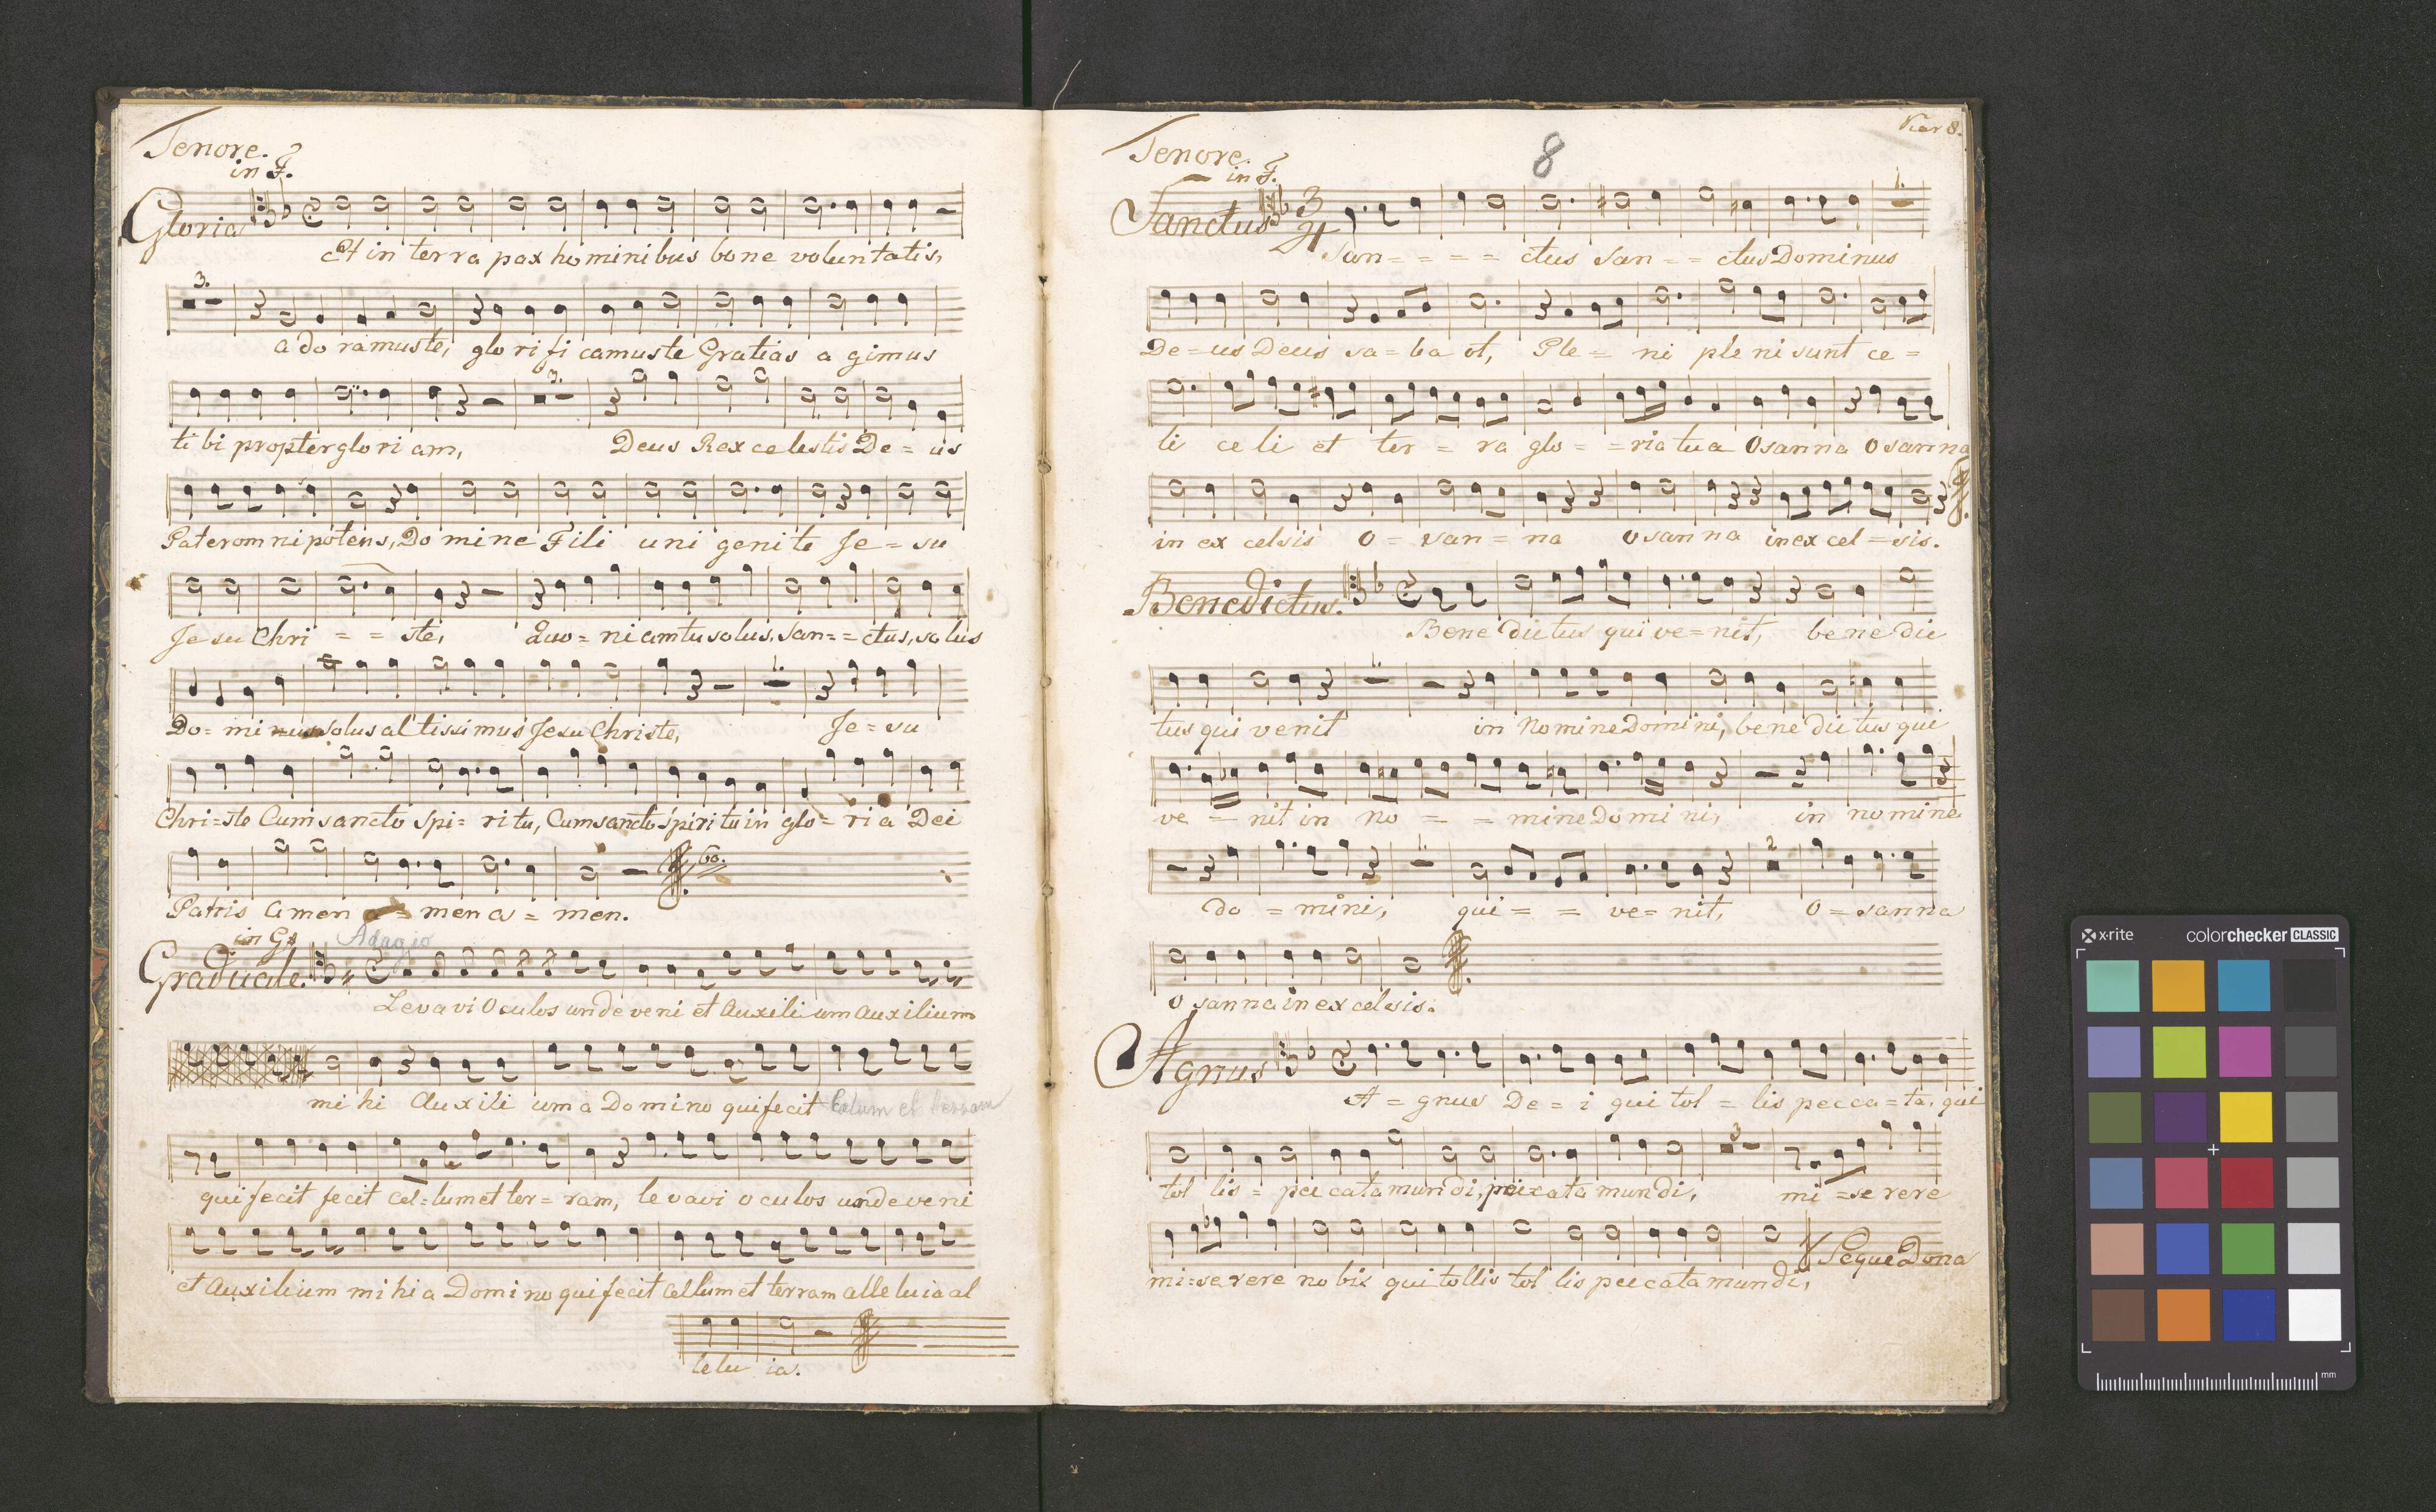 Tenore.
in F.
Gloria
Et in terra pax hominibus bone voluntatis,
3.
a do ramuste, glo ri fi camuste Gratias a gimus
3.
ti bi propter glo ri am, Deus Rex celestis De = us
Pater omnipotens, Do mine Fili uni genite Je = su
Je su Chri = = ste, Quo = ni am tu solus, san = = ctus, so lus
1.
Do = mi nus solus al tissimus Jesu Christe, Je = su
Chri = ste Cum sancto Spi = ri tu, Cum sancto Spiri tu in glo = ri a Dei
Patris Amen a = men a = men.
in G#
Adagio
Graduale.
Levavi Oculos unde veni et Auxili um auxilium
mi hi Auxili um a Domino qui fecit Celum et terram
qui fecit fecit cel = lum et ter = ram, le vavi o culos unde veni
et Auxilium mi hi a Domi no qui fecit Cellum et terram alle luia al
lelu ia.
Tenore.
in F.
8
Sanctus
3/4
1.
San = = = = ctus San = = ctus Dominus
De = us Deus sa = ba ot, Ple = ni ple ni sunt ce =
li ce li et ter = ra glo = = ria tua Osanna Osanna
in ex celsis O = san = na osanna in ex cel = sis.
Benedictus.
Bene dictus qui ve = nit, be ne dic
1.
tus qui venit in Nomine Domini, bene dic tus qui
ve = nit in no = = mine Domi ni, in nomine
1.
2
do = mini, qui = = ve = nit, O = sanna
O sanna in ex celsis.
Agnus
A = gnus De = i qui tol = lis pecca = ta, qui
3
tol lis = pec cata mundi, peccata mundi, mi = se rere
mi = se rere no bis qui tollis tol lis pec cata mundi,
Seque Dona